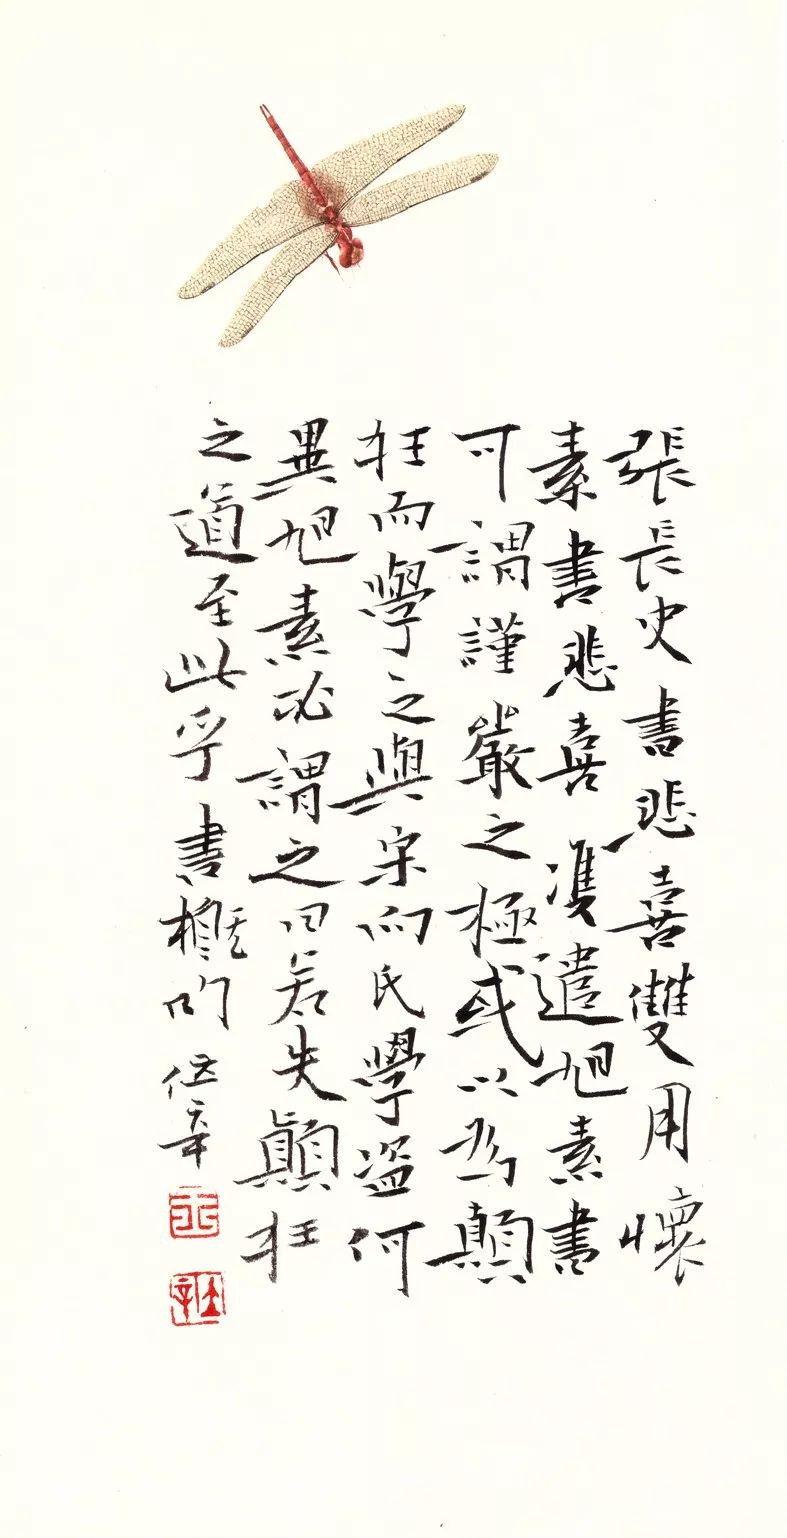 張長史書悲喜雙用懷
素書悲喜雙遣旭素書
可謂謹嚴之極或以為顛
狂而學之與宋向氏學盜何
異旭素必謂之曰若失顛狂
之道至此乎書概